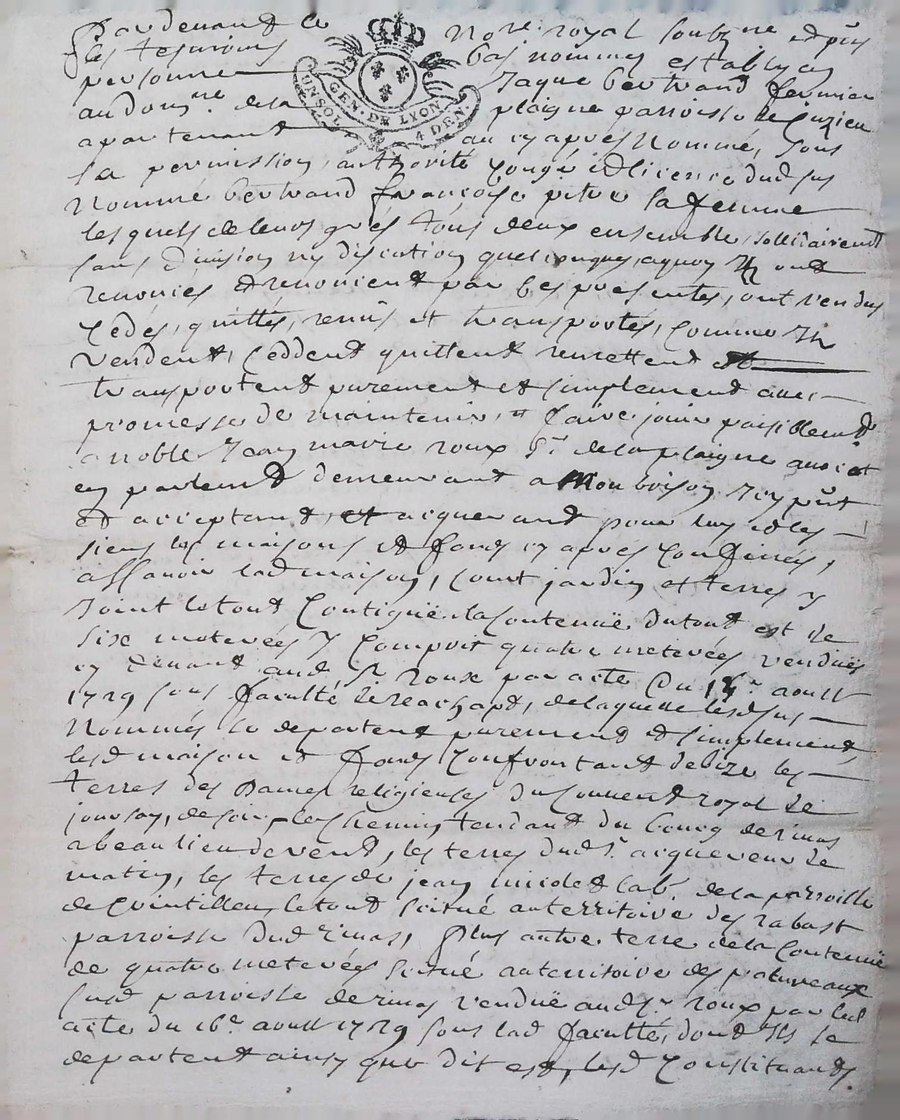 Pardevant le Nore royal soubzne et pñs
les tesmoins bas nommes estably en
personne Jaque bertrand fermier
au domne de la plaigne parroisse de Cuzieu
apartenant au cy apres Nommé, Sous
GEN. DE LYON
UN SOL 4 DEN.
la permission, authorité Congé et licence dud sus
Nommé bertrand françoise pitre sa femme
lesquels de leurs grés tous deux ensemble, sollidairement
sans division ny discution quelconques, aquoy Ils ont
renoncés et renoncent par ces presentes, ont vendus
Cédés, quittés, remis et transportés, Comme Ils
vendent, Ceddent quittent remettent et
transportent purement et simplement avec
promesse de maintenir, et faire jouir paisiblement
a noble Jean marie roux Sr. de la plaigne
en parlemt demeurant a Monbrison Icy pñt
et acceptant, et acquerant pour luy et les
siens les maisons et fonds cy apres Confinés,
assavoir lad maison, Court jardin et terres y
Joint le tout Contiguë. la Contenuë du tout est de
six meterées y Compris quatre meterées venduës
cy devant aud Sr. roux par acte du aoust
1729 sous faculté de reachapt, de laquelle lesd sus
Nommés se departent purement et simplement,
lesd maison et fonds Confrontant de bize les
terres des Dames religieuses du Couvent royal de
joursay, de soir, le chemin tendant du bourg de rivas
a beaulieu de vent, les terres dud Sr. acquereur de
matin, les terres de jean nicolet labr. de la parroisse
de Quintilleu, le tout scitué au territoire des rabast
parroisse dud rivas, Plus autre terre de la Contenuë
de quatre meterées scitué au territoire des patureaux
susd parroisse de rivas venduë aud Sr. roux par led
acte du 16e. aoust 1729 sous lad faculté, dont Ils se
departent ainsy que dit est, lesd Constituants